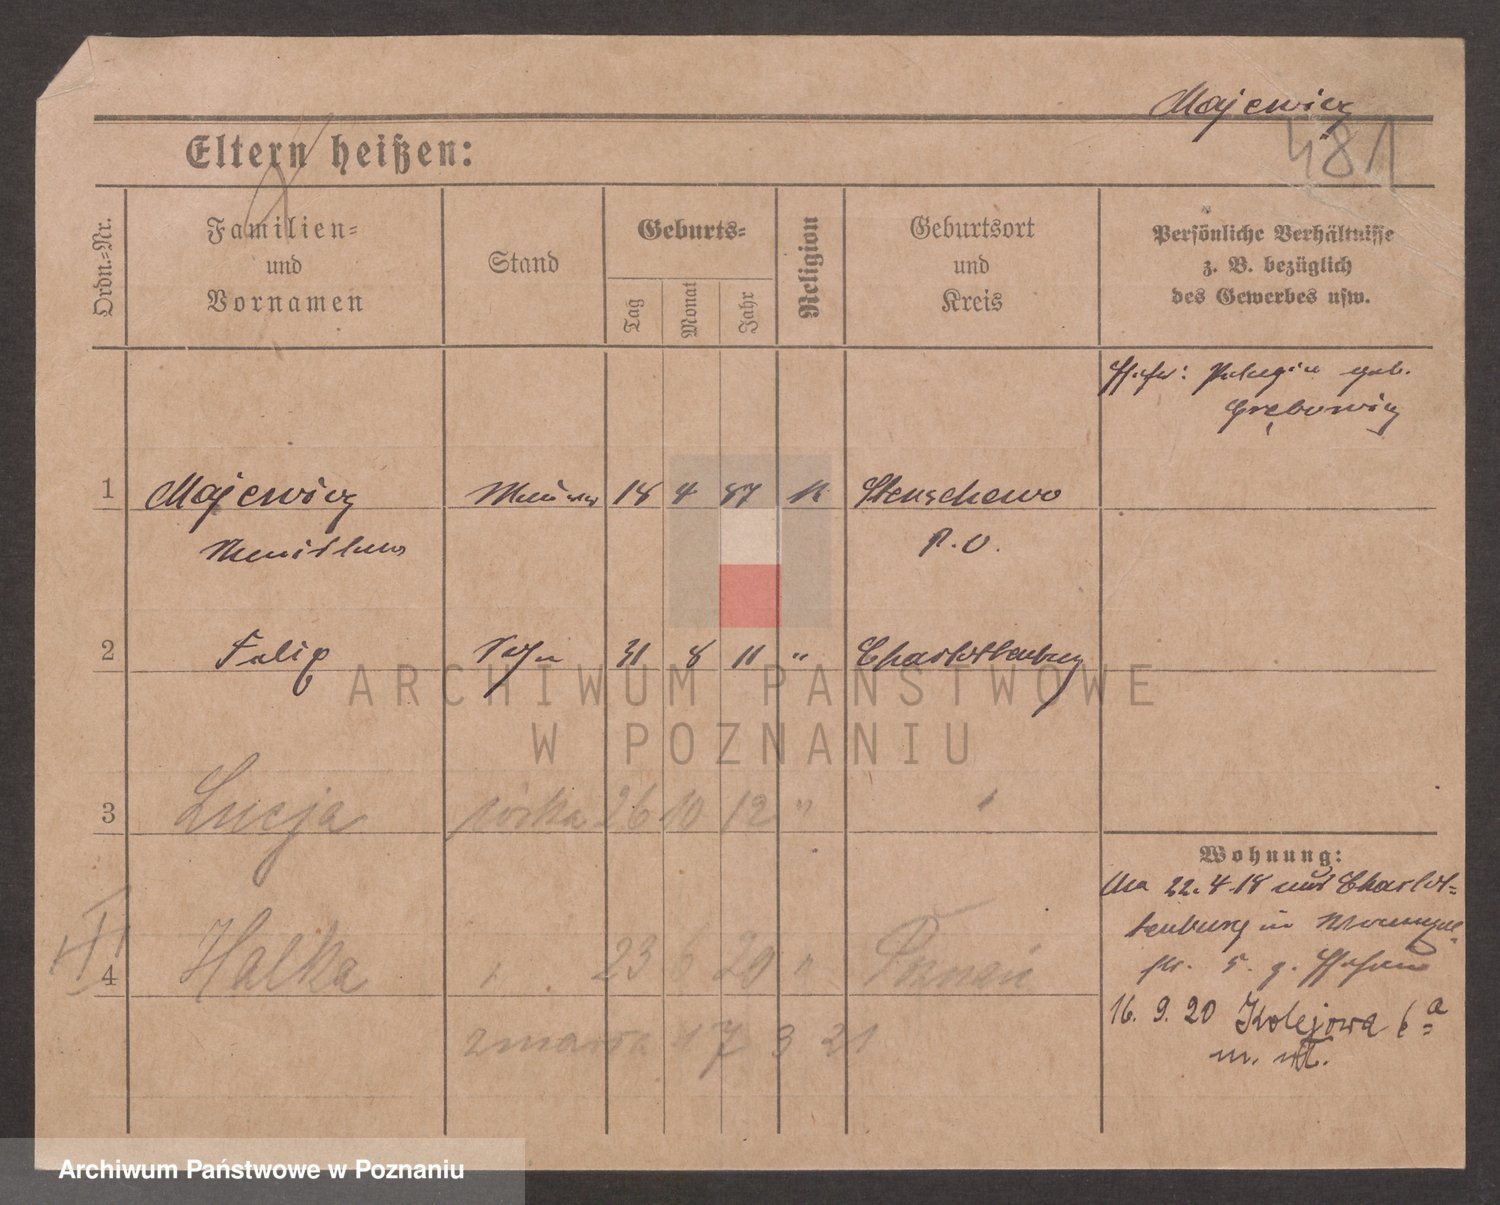 Majewicz
481
Eltern heißen:
Ordn.-Nr.
Familien-
und
Vornamen
Stand
Geburts-
Tag
Monat
Jahr
Religion
Geburtsort
und
Kreis
Persönliche Verhältnisse
z. B. bezüglich
des Gewerbes usw.
geb.
Grębowicz
1 Majewicz 18 4 87 k Stenschewo
P. O.
2 Felix Sohn 31 8 11 " Charlottenburg
3 Lucja córka 26 10 12 " "
4 Halka " 23 6 20 " Poznań
zmarła 17 3 21
Wohnung:
22.4.18 aus Charlot-
tenburg in
str. 5.
16. 9. 20 Kolejowa 6 a
ARCHIWUM PAŃSTWOWE
W POZNANIU
Archiwum Państwowe w Poznaniu